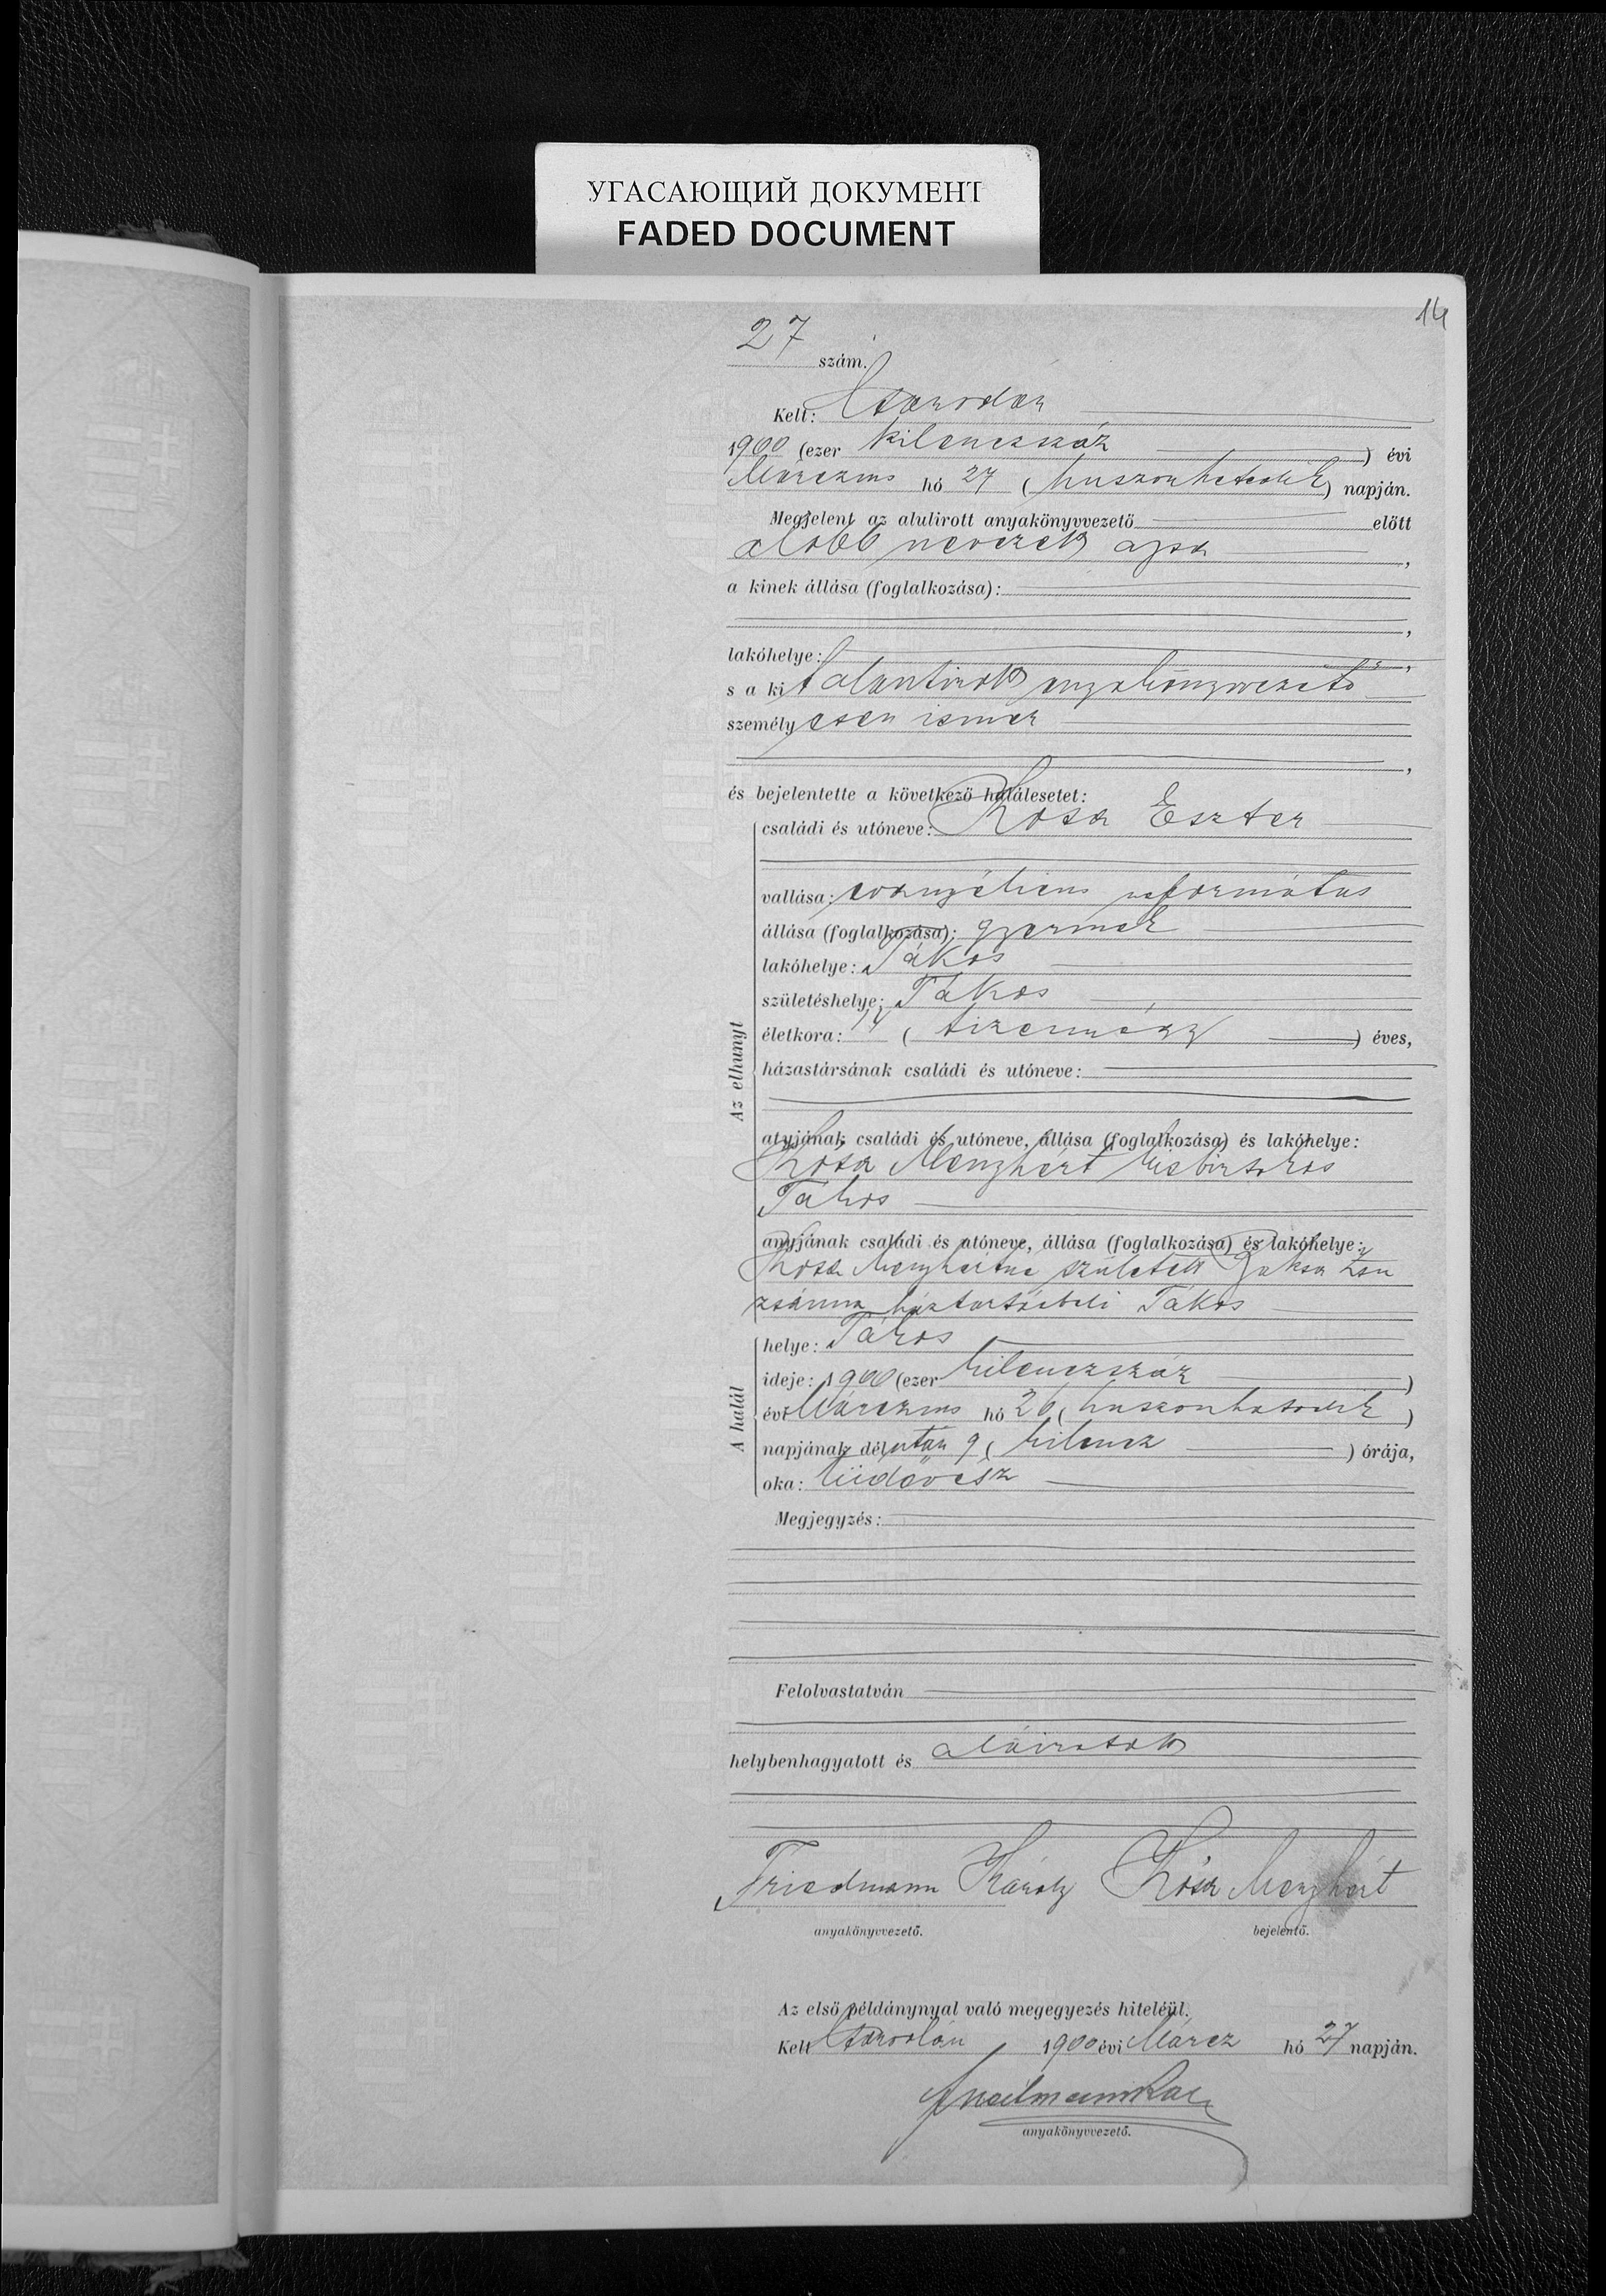 УГАСАЮЩИЙ ДОКУМЕНТ
FADED DOCUMENT
14
27 szám.
Kelt: Csarodán
1900 (ezer kilenczszáz) évi
Márczius hó 27 (huszonhetedik) napján.
Megjelent az alulirott anyakönyvvezető előtt
alább nevezett apja,
a kinek állása (foglalkozása):
lakóhelye:
s a kit alantirott anyakönyvvezető
személyesen ismer
és bejelentette a következő halálesetet:
Az elhunyt
családi és utóneve: Kósa Eszter
vallása: evangélicus református
állása (foglalkozása): gyermek
lakóhelye: Tákos
születéshelye: Tákos
életkora: 14 (tizennégy) éves,
házastársának családi és utóneve:
atyjának családi és utóneve, állása (foglalkozása) és lakóhelye:
Kósa Menyhért kisbirtokos
Tákos
anyjának családi és utóneve, állása (foglalkozása) és lakóhelye:
Kósa Menyhértné született Zsu
zsánna háztartásbeli Tákos
A halál
helye: Tákos
ideje: 1900 (ezer kilenczszáz)
évi Márczius hó 26 (huszonhatodik)
napjának délután 9 (kilencz) órája,
oka: tüdővész
Megjegyzés:
Felolvastatván
helybenhagyatott és aláiratott
Friedmann Károly Kósa Menyhért
anyakönyvvezető. bejelentő.
Az első példánynyal való megegyezés hiteléül.
Kelt Csarodán 1900 évi Márcz hó 27 napján.
anyakönyvvezető.